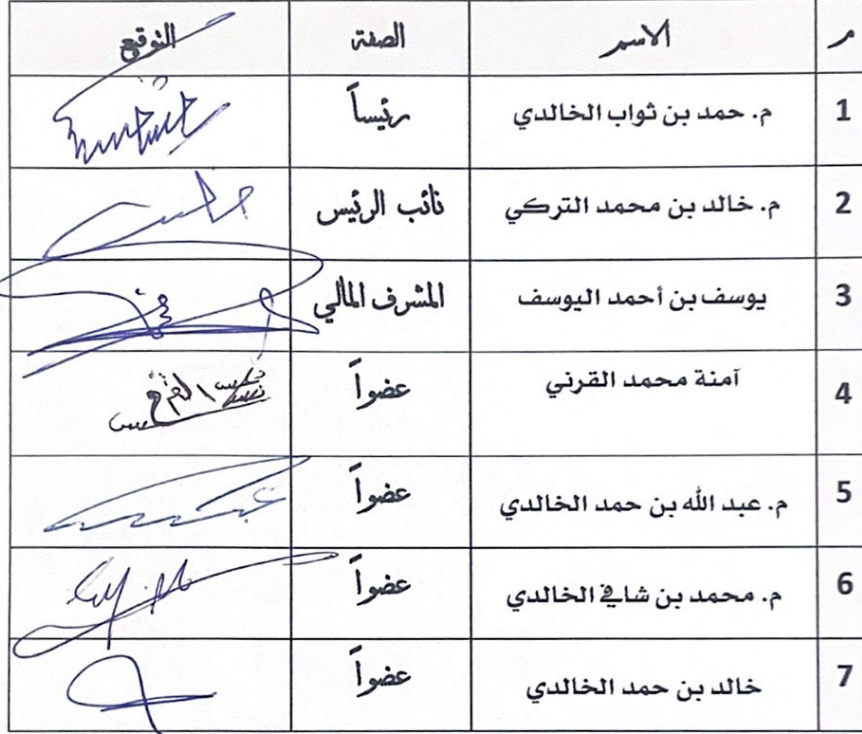 م الاسم الصفة التوقيع
1 م. حمد بن ثواب الخالدي رئيساً
2 م. خالد بن محمد التركي نائب الرئيس
3 يوسف بن أحمد اليوسف المشرف المالي
4 آمنة محمد القرني عضواً
5 م. عبد الله بن حمد الخالدي عضواً
6 م. محمد بن شافي الخالدي عضواً
7 خالد بن حمد الخالدي عضواً